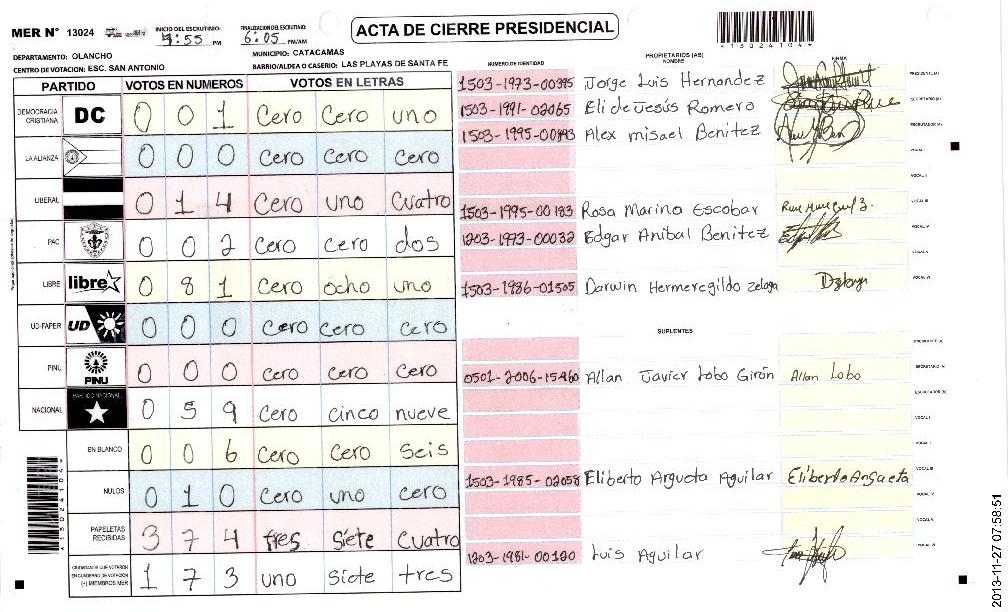 MER N° 13024
INICIO DEL ESCRUTINIO: 4:55 PM
FINALIZACION DEL ESCRUTINIO: 6:05 PM/AM
ACTA DE CIERRE PRESIDENCIAL
*13024104*
DEPARTAMENTO: OLANCHO
MUNICIPIO: CATACAMAS
CENTRO DE VOTACION: ESC. SAN ANTONIO
BARRIO/ALDEA O CASERIO: LAS PLAYAS DE SANTA FE
PARTIDO VOTOS EN NUMEROS VOTOS EN LETRAS
DEMOCRACIA CRISTIANA DC 0 0 1 Cero Cero uno
LA ALIANZA 0 0 0 Cero Cero Cero
LIBERAL 0 1 4 Cero uno Cuatro
PAC 0 0 2 Cero cero dos
LIBRE libre 0 8 1 Cero ocho uno
UD-FAPER UD 0 0 0 Cero Cero Cero
PINU PINU 0 0 0 Cero Cero Cero
NACIONAL PARTIDO NACIONAL 0 5 9 Cero cinco nueve
EN BLANCO 0 0 6 Cero Cero Seis
NULOS 0 1 0 Cero uno cero
PAPELETAS RECIBIDAS 3 7 4 tres siete Cuatro
CIUDADANOS QUE VOTARON EN CUADERNO DE VOTACION (+) MIEMBROS MER 1 7 3 uno Siete tres
*13024104*
NUMERO DE IDENTIDAD PROPIETARIOS (AS) NOMBRE FIRMA
1503-1973-00395 Jorge Luis Hernandez PRESIDENTE (A)
1503-1991-02065 Eli de Jesús Romero SECRETARIO (A)
1503-1995-00893 Alex misael Benitez ESCRUTADOR (A)
VOCAL I
VOCAL II
1503-1995-00183 Rosa Marino Escobar VOCAL III
1203-1973-00032 Edgar Anibal Benitez VOCAL IV
VOCAL V
1503-1986-01505 Darwin Hermeregildo Zelaya VOCAL VI
SUPLENTES
PRESIDENTE (A)
0501-2006-15460 Allan Javier Lobo Girón Allan Lobo SECRETARIO (A)
ESCRUTADOR (A)
VOCAL I
VOCAL II
1503-1985-02058 Eliberto Argueta Aguilar Eliberto Argueta VOCAL III
VOCAL IV
VOCAL V
1203-1981-00120 Luis Aguilar VOCAL VI
2013-11-27 07:58:51